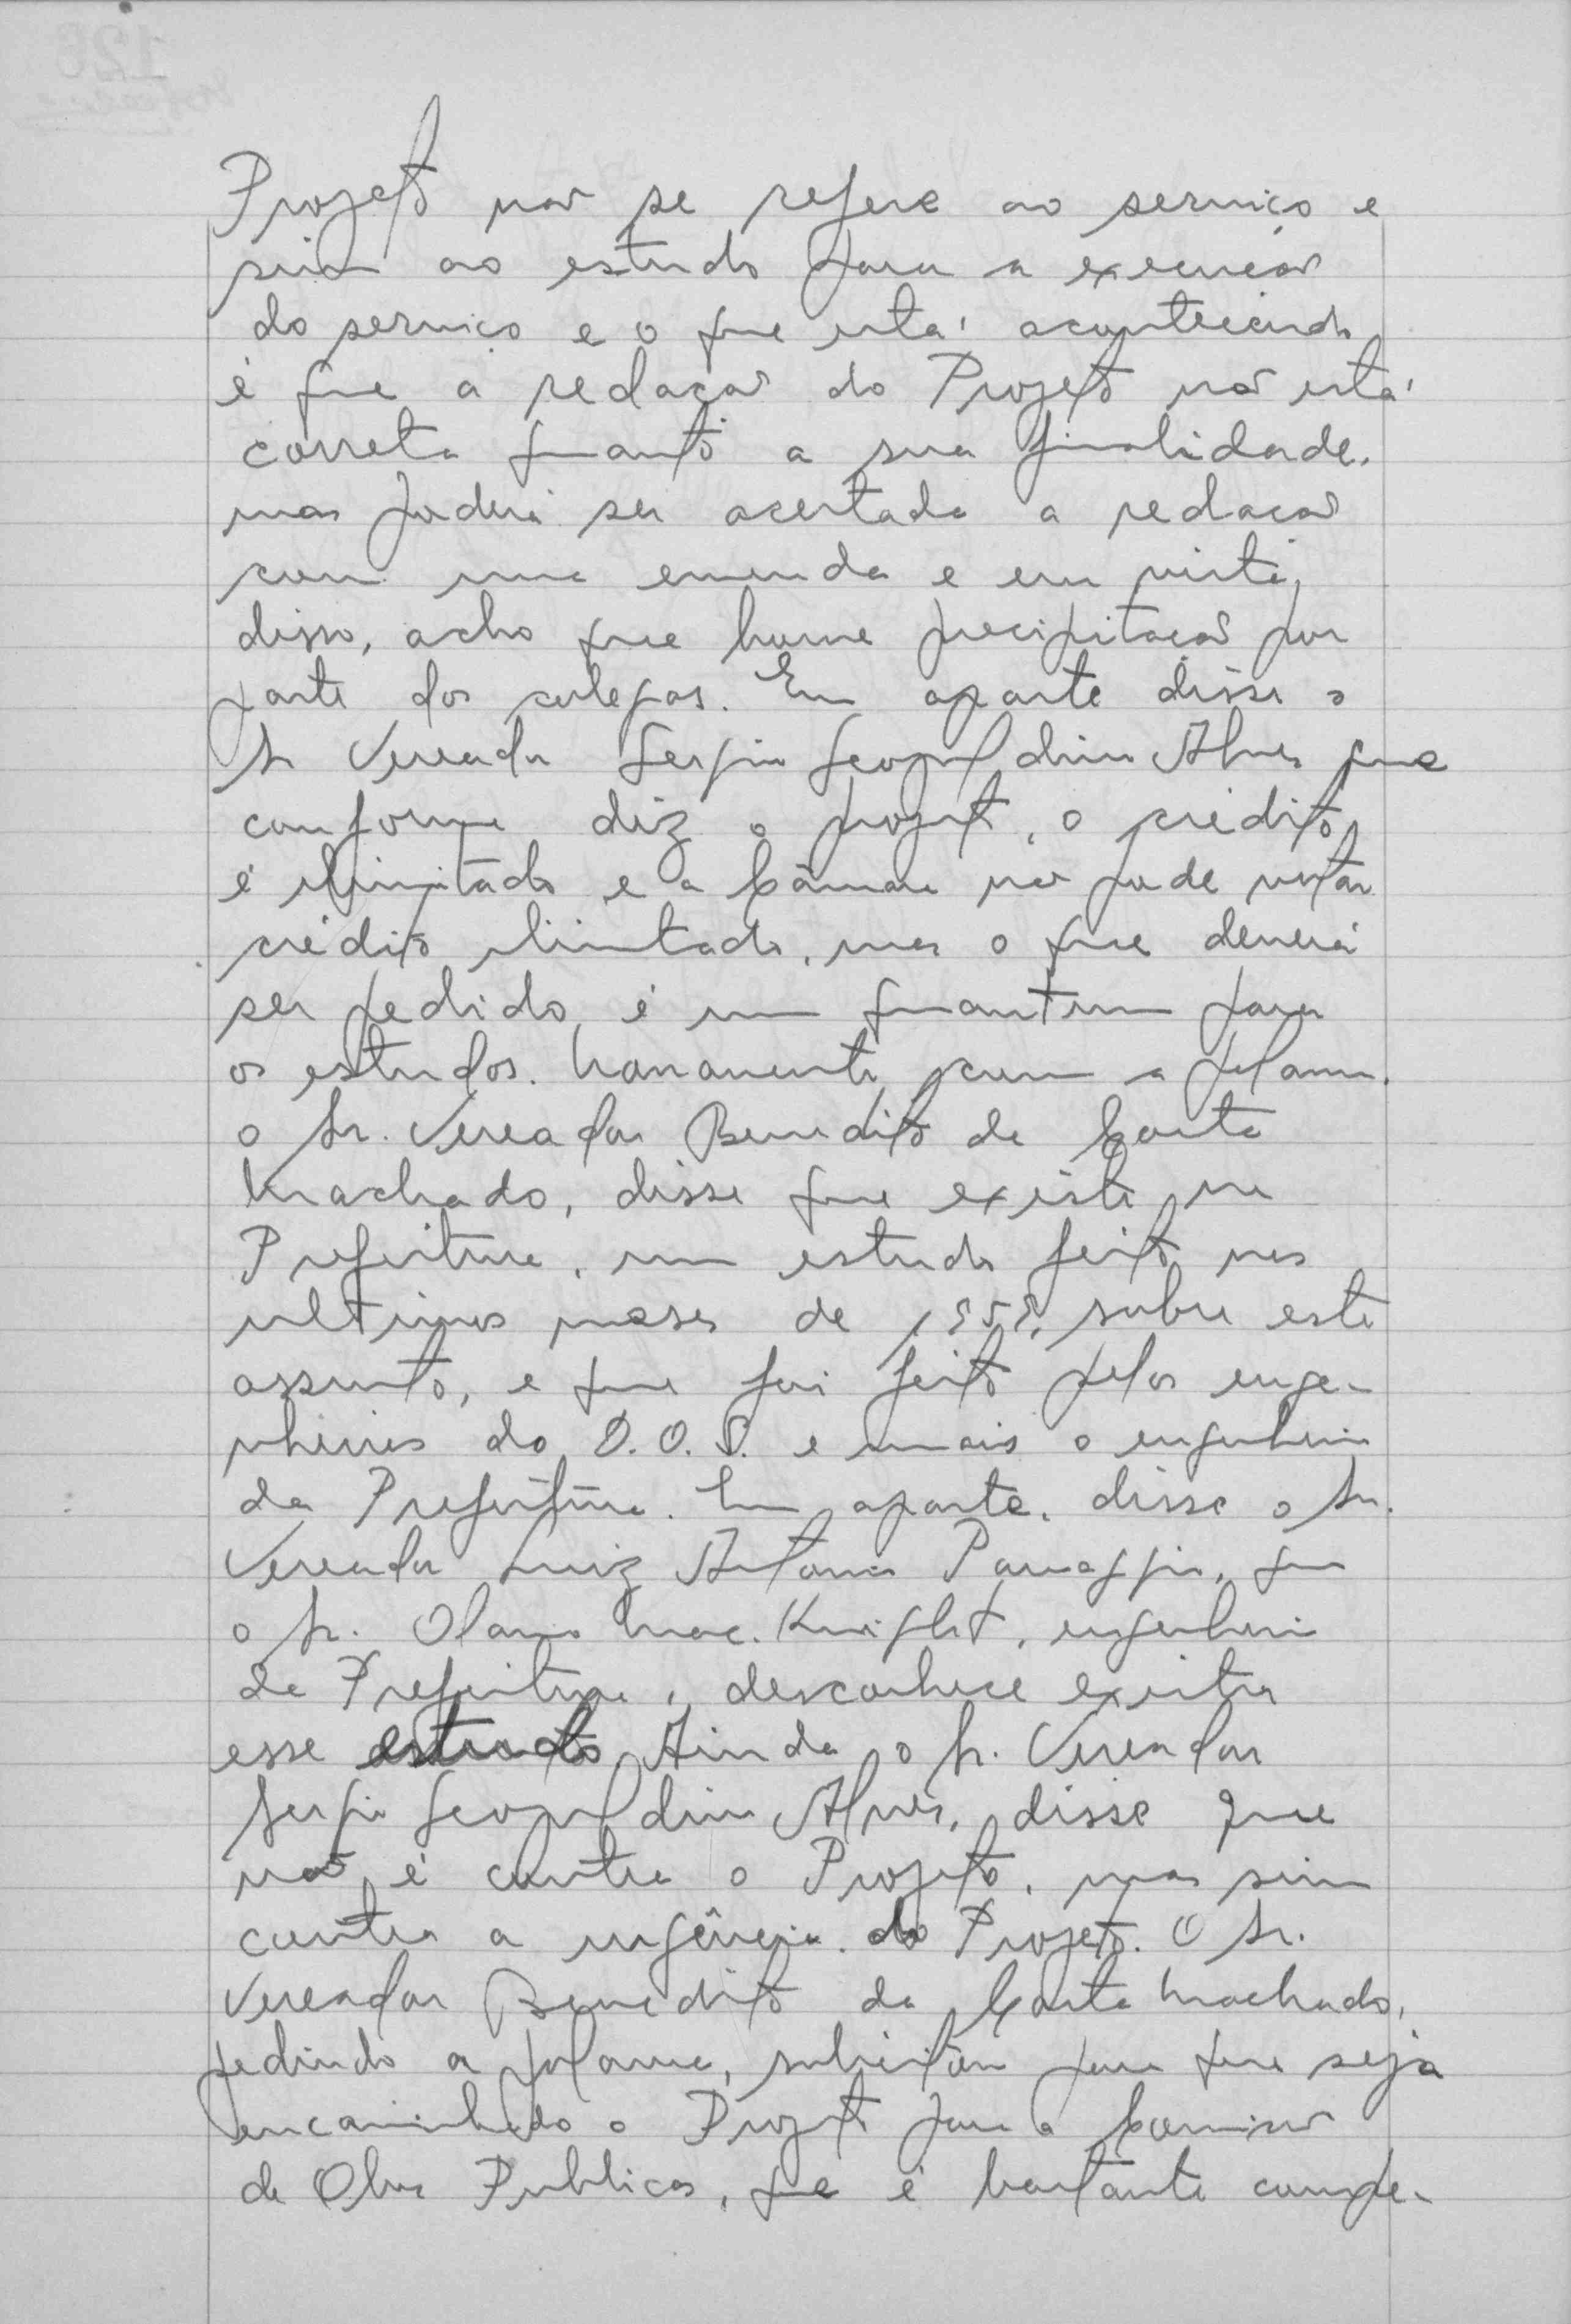 Projeto não se refere ao serviço e
sim ao estudo para a execução
do serviço e o que está acontecendo
é que a redação do Projeto não está
correta quanto a sua finalidade,
mas poderá ser acertada a redação
com uma emenda e em vista
disso, acho que houve precipitação por
parte dos colegas. Em aparte disse o
Sr Vereador Sergio Leopoldino Alves que
conforme diz o projeto, o crédito
é ilimitado e a Câmara não pode votar
crédito ilimitado, mas o que deverá
ser pedido é um quantum para
os estudos. Novamente com a palavra
o Sr. Vereador Benedito da Costa
Machado, disse que existe na
Prefeitura, um estudo feito nos
ultimos meses de 1959, sobre este
assunto, e que foi feito pelos enge-
nheiros do D.O.S. e mais o engenheiro
da Prefeitura. Em aparte, disse o Sr.
Vereador Luiz Antonio que
o Sr. Olavo Mac. Knight, engenheiro
da Prefeitura, desconhece existir
esse estudo Ainda o Sr. Vereador
Sergio Leopoldino Alves, disse que
não é contra o Projeto, mas sim
contra a urgência do Projeto. O Sr.
Vereador Benedito da Costa Machado,
pedindo a palavra, solicitou para que seja
encaminhado o Projeto para a Comissão
de Obras Publicas, que é bastante compe-